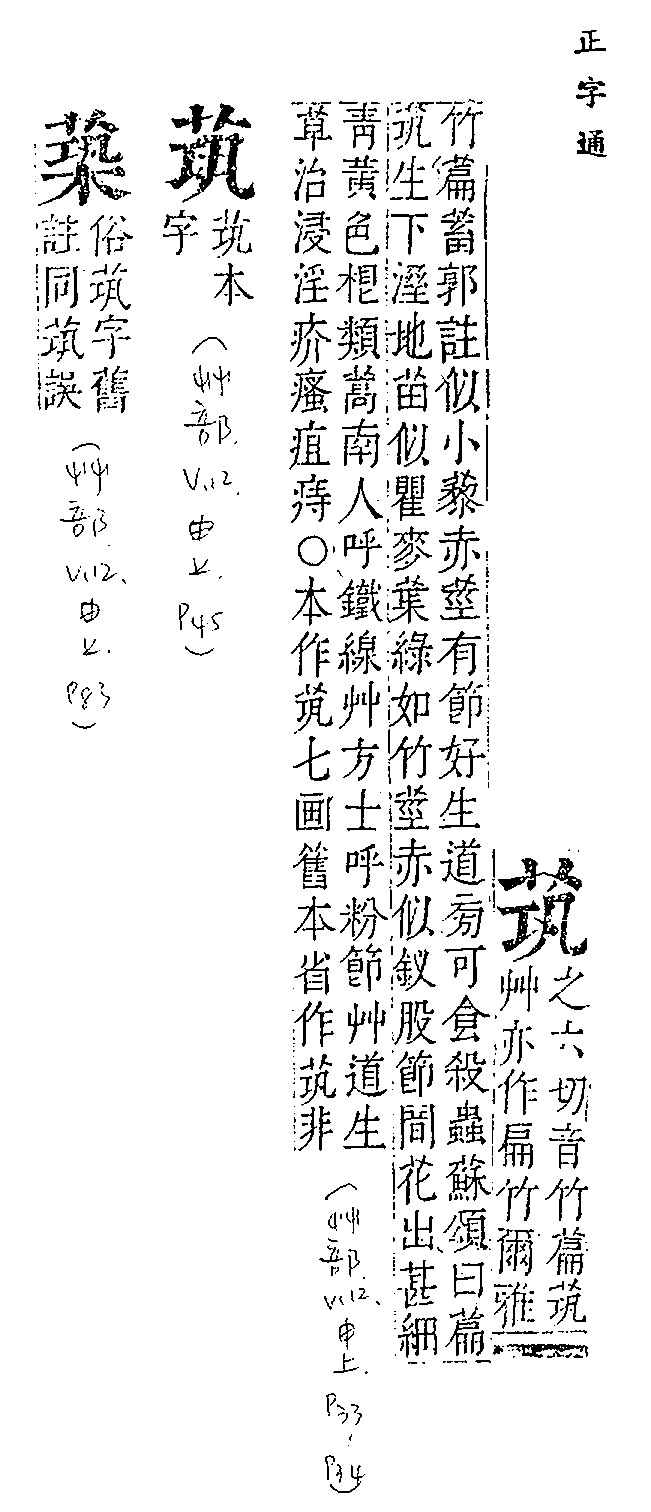 正字通
茿
之六切音竹萹茿
艸亦作扁竹爾雅
竹萹蓄郭註似小藜赤莖有節好生道旁可食殺蟲蘇頌曰萹
茿生下溼地苗似瞿麥葉綠如竹莖赤似釵股節間花出甚細
靑黃色根類蒿南人呼鐵線艸方士呼粉節艸道生
草治浸淫疥瘙疽痔○本作茿七画舊本省作茿非
(艸部.V.12.申上.P33,P34)
茿
茿本
字
(艸部.V.12.申上.P45)
俗茿字舊
註同茿誤
(艸部.V.12.申上.P83)